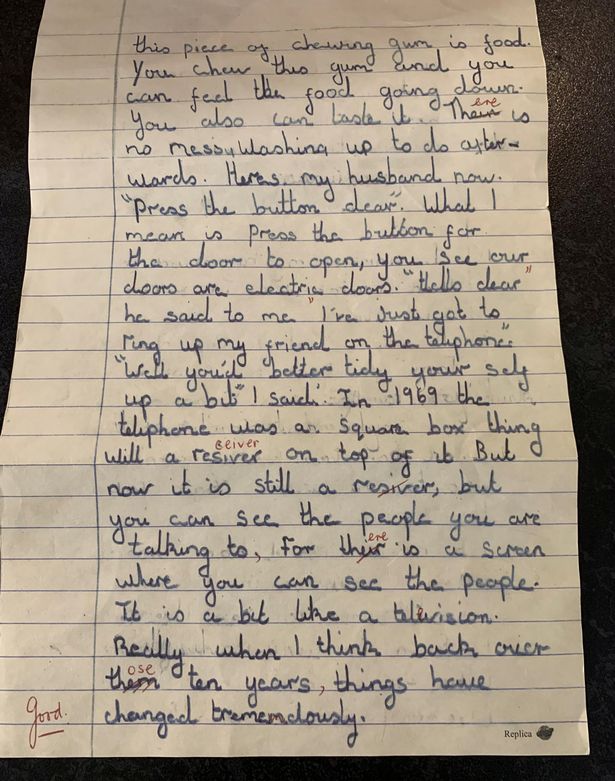 this piece of chewing gum is food.
You chew this gum and you
can feel the food going down.
You also can taste it. Their ere is
no messy Washing up to do after-
wards. Heres my husband now.
"Press the button dear". What I
mean is Press the button for
the door to open, you see our
doors are electric doors. "Hallo dear"
he said to me "I've Just got to
ring up my friend on the telephone".
"Well you'd better tidy your self
up a bit" I said. In 1969 the
telephone was a square box thing
will a resiver ceiver on top of it But
now it is still a resiver, but
you can see the people you are
talking to, for their ere is a screen
where you can see the people.
It is a bit like a television.
Really when I think back over
them ose ten years, things have
Good. changed trememdously.
Replica